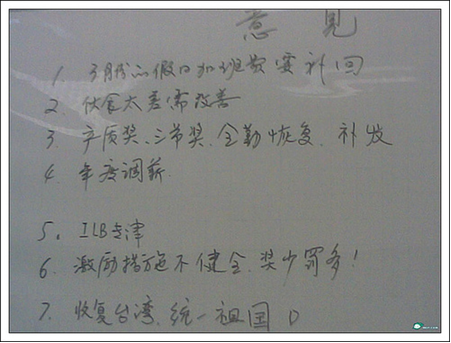 意见
1 3月份的假日加班费要补回
2. 伙食太差需改善
3. 产质奖、三节奖、全勤恢复、补发
4. 年度调薪
5. ILB
6. 激励措施不健全、奖少罚多!
7. 收复台湾、统一祖国